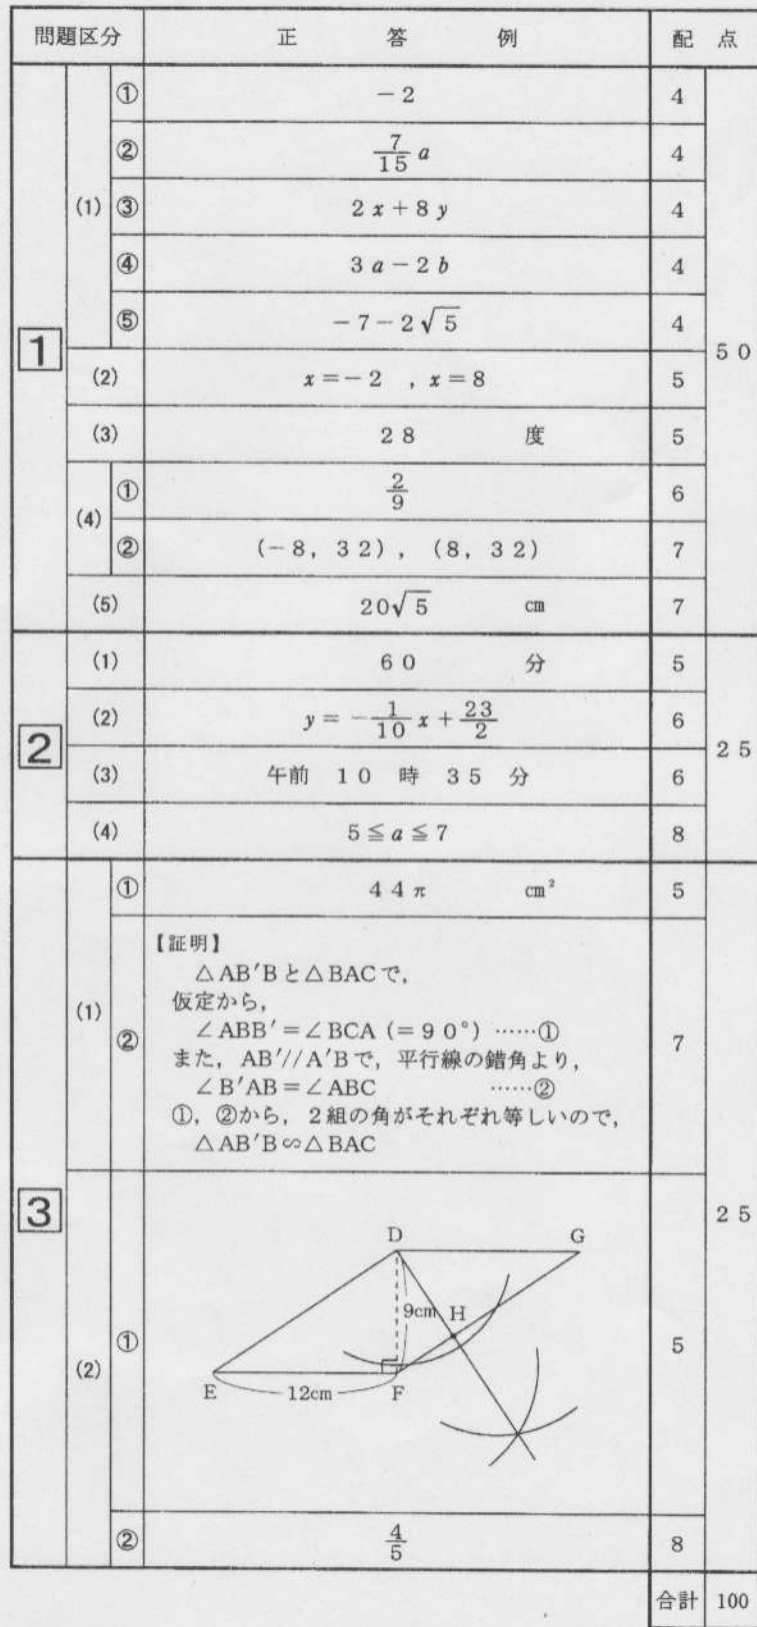 問題区分 正 答 例 配 点
1 50
(1) ① －2 4
② 7/15 a 4
③ 2x＋8y 4
④ 3a－2b 4
⑤ －7－2√5 4
(2) x＝－2 , x＝8 5
(3) 28 度 5
(4) ① 2/9 6
② (－8, 32), (8, 32) 7
(5) 20√5 cm 7
2 25
(1) 60 分 5
(2) y＝－1/10 x＋23/2 6
(3) 午前 10 時 35 分 6
(4) 5≦a≦7 8
3 25
(1) ① 44π cm² 5
② 7
【証明】
△AB′Bと△BACで,
仮定から,
∠ABB′＝∠BCA (＝90°) ……①
また, AB′//A′Bで, 平行線の錯角より,
∠B′AB＝∠ABC ……②
①, ②から, 2組の角がそれぞれ等しいので,
△AB′B∽△BAC
(2) ① 5
D G
9cm H
E 12cm F
② 4/5 8
合計 100